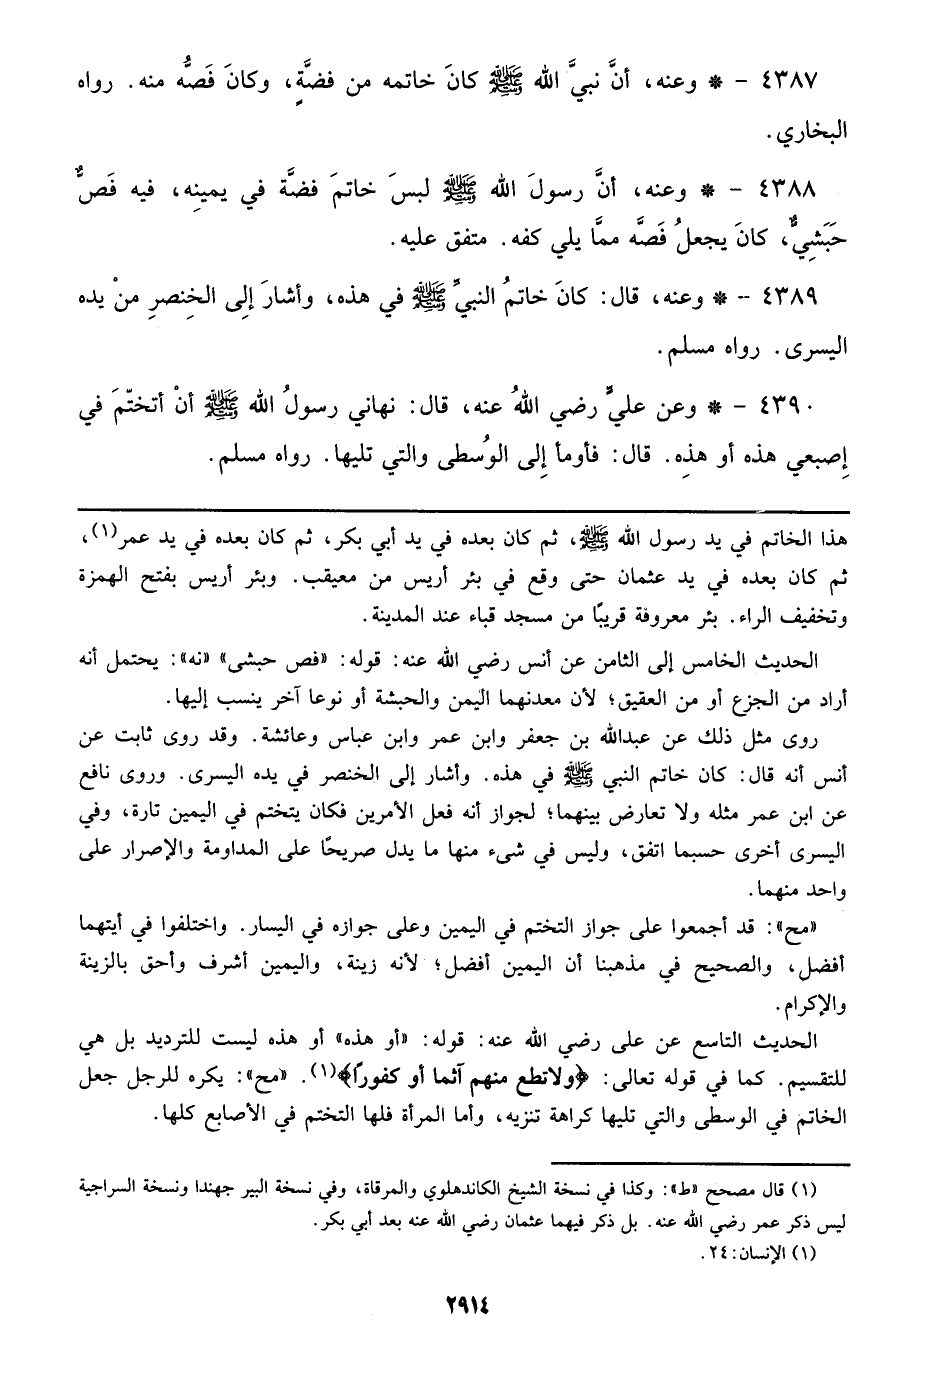 ٤٣٨٧ – * وعنه، أنَّ نبيَّ الله ﷺ كانَ خاتمه من فضَّةٍ، وكانَ فَصُّه منه. رواه
البخاري.
٤٣٨٨ – * وعنه، أنَّ رسولَ الله ﷺ لبسَ خاتمَ فضَّة في يمينِه، فيه فَصٌّ
حَبَشِيٌّ، كانَ يجعلُ فَصَّه ممَّا يلي كفه. متفق عليه.
٤٣٨٩ – * وعنه، قال: كانَ خاتمُ النبيِّ ﷺ في هذه، وأشارَ إِلى الخِنصرِ منْ يده
اليسرى. رواه مسلم.
٤٣٩٠ – * وعن عليٍّ رضي اللهُ عنه، قال: نهاني رسولُ الله ﷺ أنْ أتختّمَ في
إِصبعي هذه أو هذِه. قال: فأومأ إِلى الوُسطى والتي تليها. رواه مسلم.
هذا الخاتم في يد رسول الله ﷺ، ثم كان بعده في يد أبي بكر، ثم كان بعده في يد عمر(١)،
ثم كان بعده في يد عثمان حتى وقع في بئر أريس من معيقب. وبئر أريس بفتح الهمزة
وتخفيف الراء. بئر معروفة قريبًا من مسجد قباء عند المدينة.
الحديث الخامس إلى الثامن عن أنس رضي الله عنه: قوله: «فص حبشى» «نه»: يحتمل أنه
أراد من الجزع أو من العقيق؛ لأن معدنهما اليمن والحبشة أو نوعا آخر ينسب إليها.
روى مثل ذلك عن عبدالله بن جعفر وابن عمر وابن عباس وعائشة. وقد روى ثابت عن
أنس أنه قال: كان خاتم النبي ﷺ في هذه. وأشار إلى الخنصر في يده اليسرى. وروي نافع
عن ابن عمر مثله ولا تعارض بينهما؛ لجواز أنه فعل الأمرين فكان يتختم في اليمين تارة، وفي
اليسرى أخرى حسبما اتفق، وليس في شىء منها ما يدل صريحًا على المداومة والإصرار على
واحد منهما.
«مح»: قد أجمعوا على جواز التختم في اليمين وعلى جوازه في اليسار. واختلفوا في أيتهما
أفضل، والصحيح في مذهبنا أن اليمين أفضل؛ لأنه زينة، واليمين أشرف وأحق بالزينة
والإكرام.
الحديث التاسع عن على رضي الله عنه: قوله: «أو هذه» أو هذه ليست للترديد بل هي
للتقسيم. كما في قوله تعالى: ﴿ولاتطع منهم آثما أو كفورًا﴾(١). «مح»: يكره للرجل جعل
الخاتم في الوسطى والتي تليها كراهة تنزيه، وأما المرأة فلها التختم في الأصابع كلها.
(١) قال مصحح «ط»: وكذا في نسخة الشيخ الكاندهلوي والمرقاة، وفي نسخة البير جهندا ونسخة السراجية
ليس ذكر عمر رضي الله عنه. بل ذكر فيهما عثمان رضي الله عنه بعد أبي بكر.
(١) الإنسان: ٢٤.
٢٩١٤